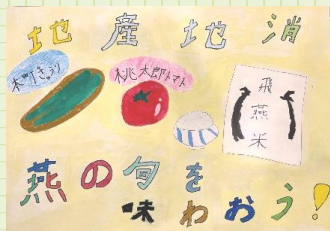 地産地消
本町きゅうり
桃太郎トマト
飛燕米
燕の旬を
味わおう!